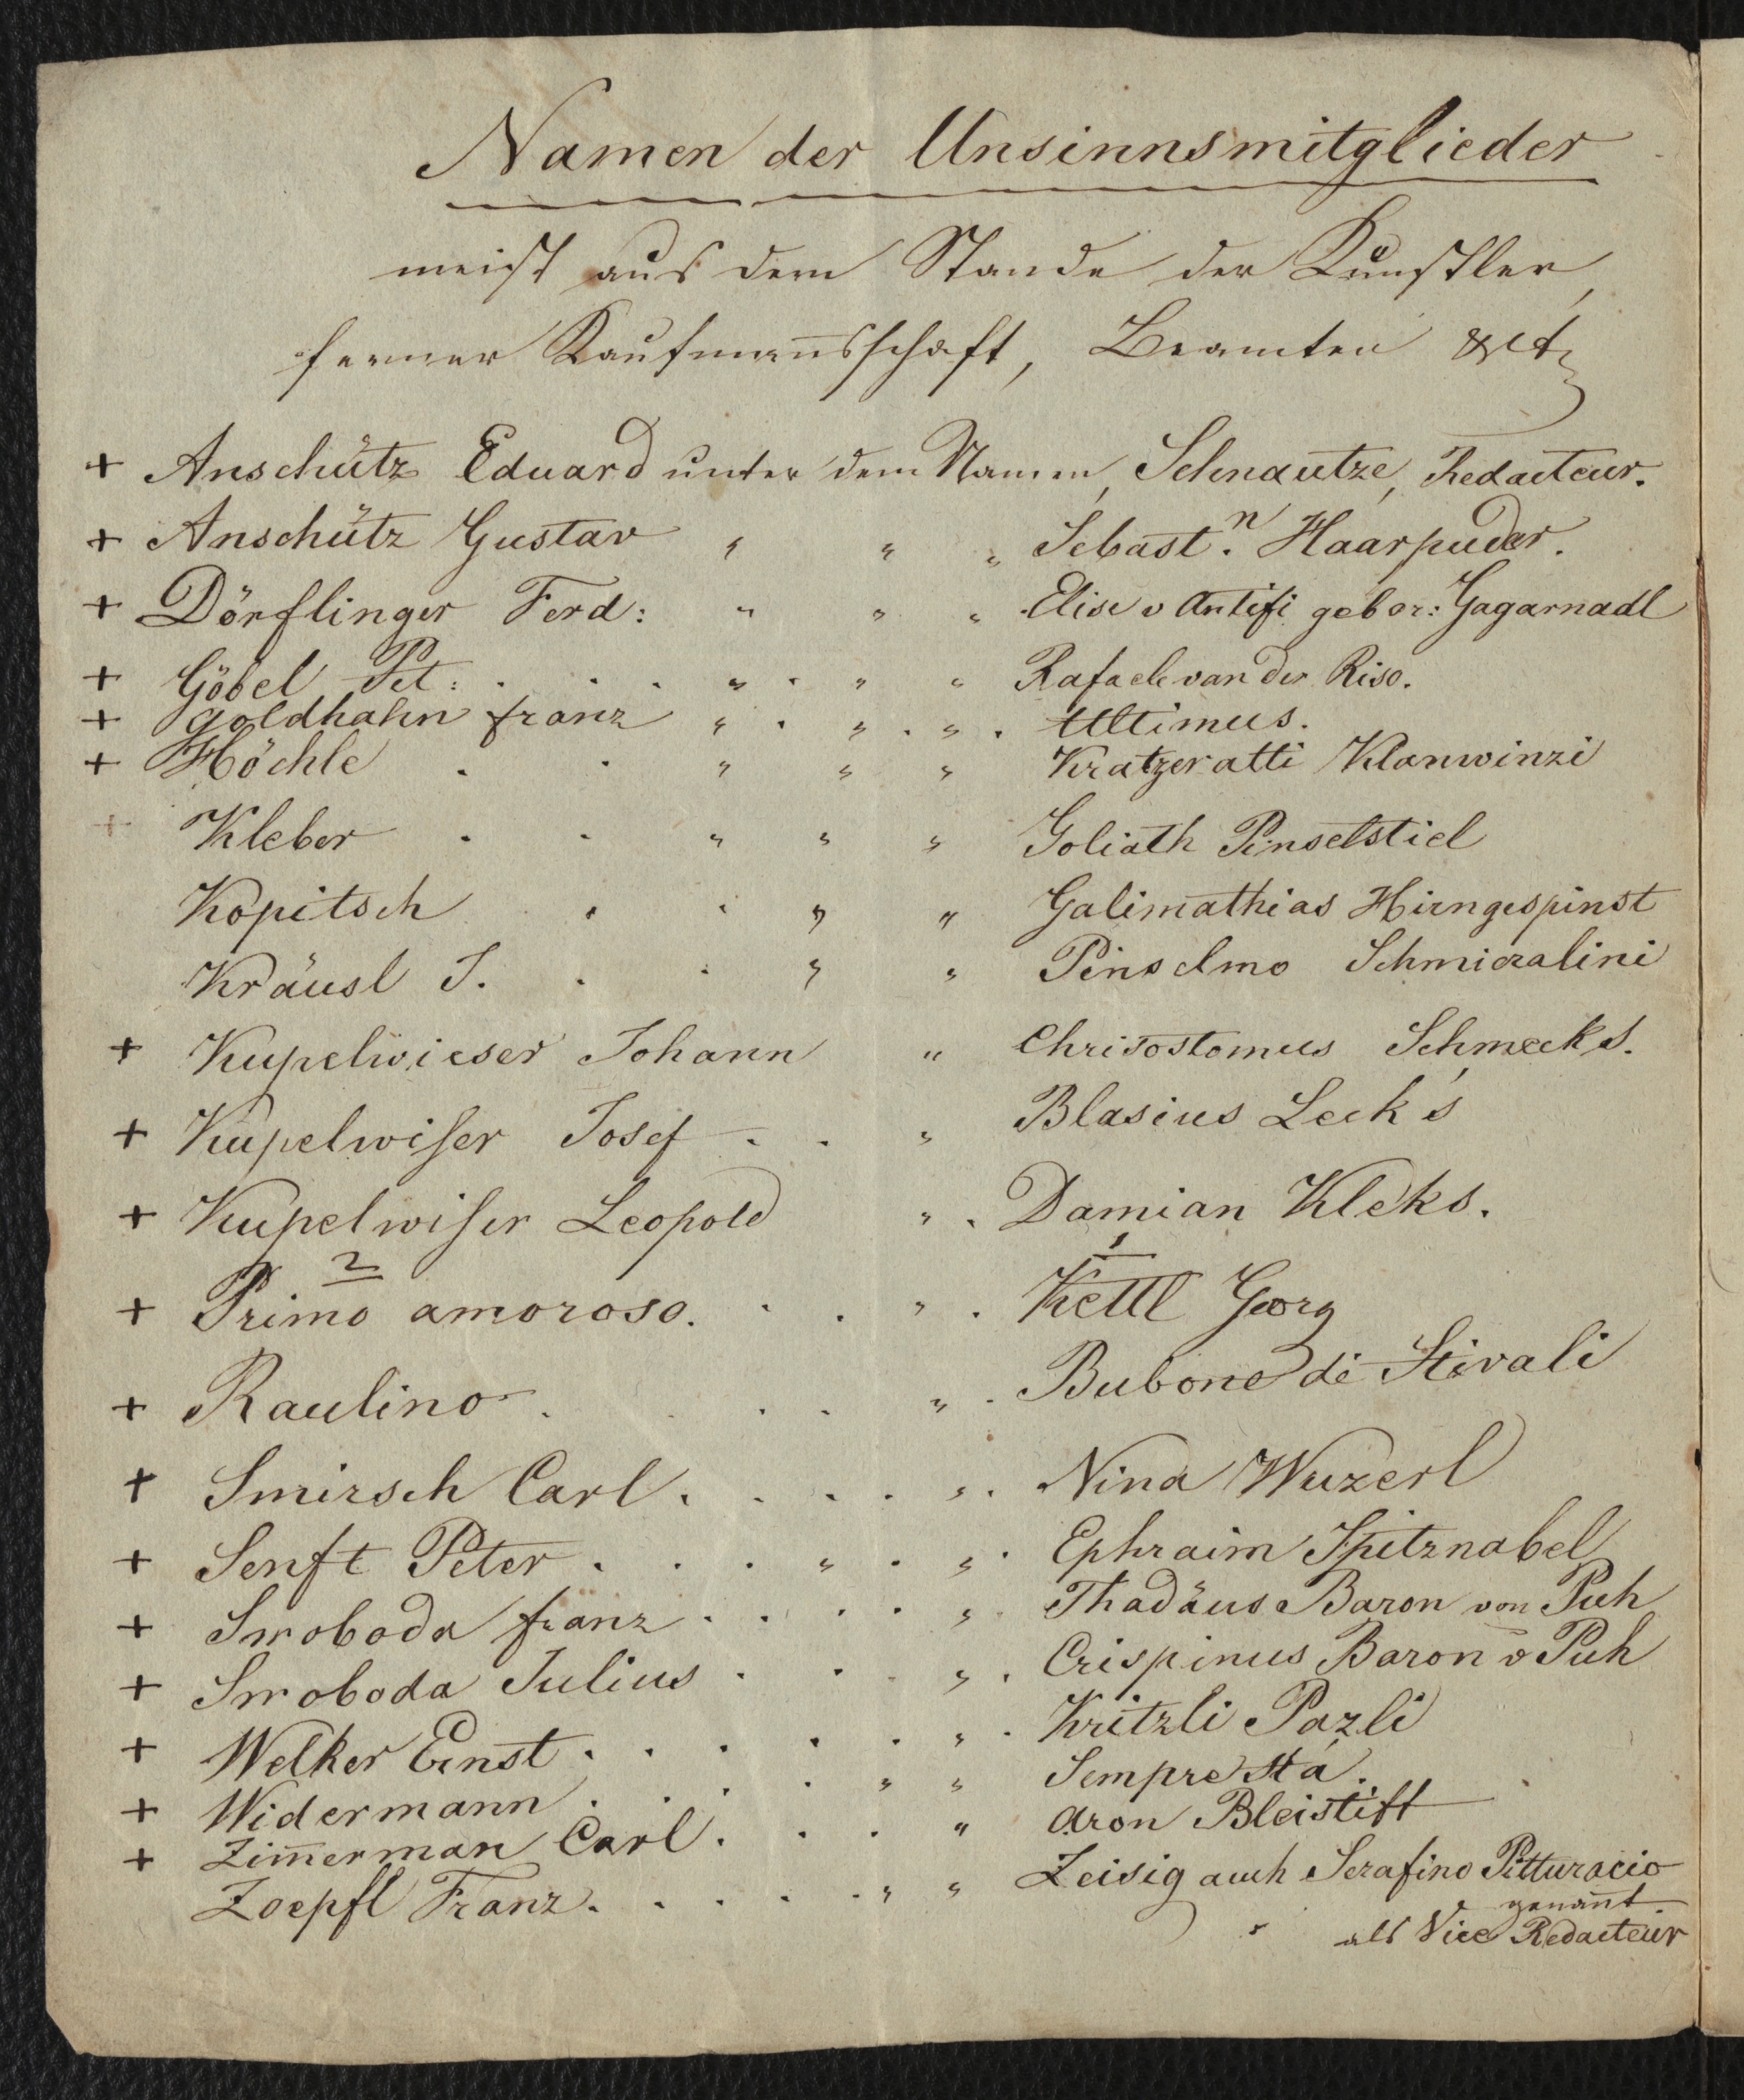 Namen der Unsinnsmitglieder
meist aus dem Stande der Künstler,
ferner Kaufman̄sschaft, Beamten &ct
+ Anschütz Eduard unter dem Namen Schnautze, Redacteur.
+ Anschütz Gustav " " " Sebast.n Haarpuder.
+ Dörflinger Ferd: " " " Elise v Antifi gebor: Gagarnadl
+ Göbel Pet: . . . " . " " Rafaele van der Riso.
+ Goldhahn Franz " . " . " . Ultimus.
+ Höchle . . " " " Kratzeratti Klanwinzi
+ Kleber . . " " " Goliath Pinselstiel
Kopitsch . . " " Galimathias Hirngespinst
Kräusl J. . . " " Pinselmo Schmieralini
+ Kupelwieser Johann " Chrisostomus Schmecks.
+ Kupelwiſer Josef . . " Blasius Leck's
+ Kupelwiſer Leopold " . Damian Kleks.
2 1
+ Primo amoroso. . . " . Kettl Georg
+ Raulino . . . " . Bubone di Stivali
+ Smirsch Carl . . . . " . Nina Wuzerl
+ Senft Peter . . . " . " . Ephraim Spitznabel
+ Swoboda Franz . . . . " . Thadäus Baron von Puh
+ Swoboda Julius . . . " . Crispinus Baron v Puh
+ Welker Ernst . . . . . " . Kritzli Pazli
+ Widermann . . . . " " Sempre stá.
+ Zim̄erman Carl . . . " Aron Bleistift
Zoepfl Franz . . . . " " Zeisig auch Serafino Pitturacio
genan̄t.
als Vice Redacteur